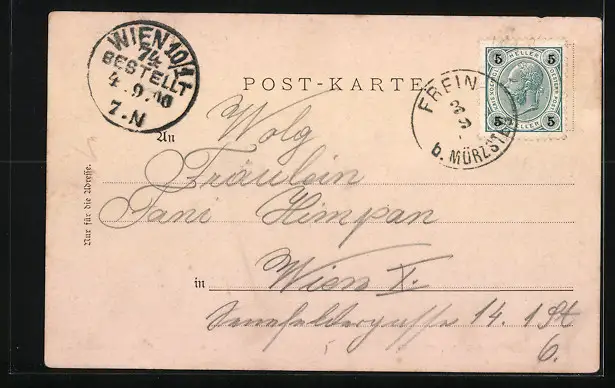 WIEN 10/1T
74
BESTELLT
4.9.00
7.N
POST-KARTE
FREIN
b. MÜRZSTEG
5 HELLER 5
5 HELLER 5
An
Wolg
Fräulein
Fani Himpan
in Wien X.
Senefeldergasse 14. 1 St
6.
Nur für die Adresse.